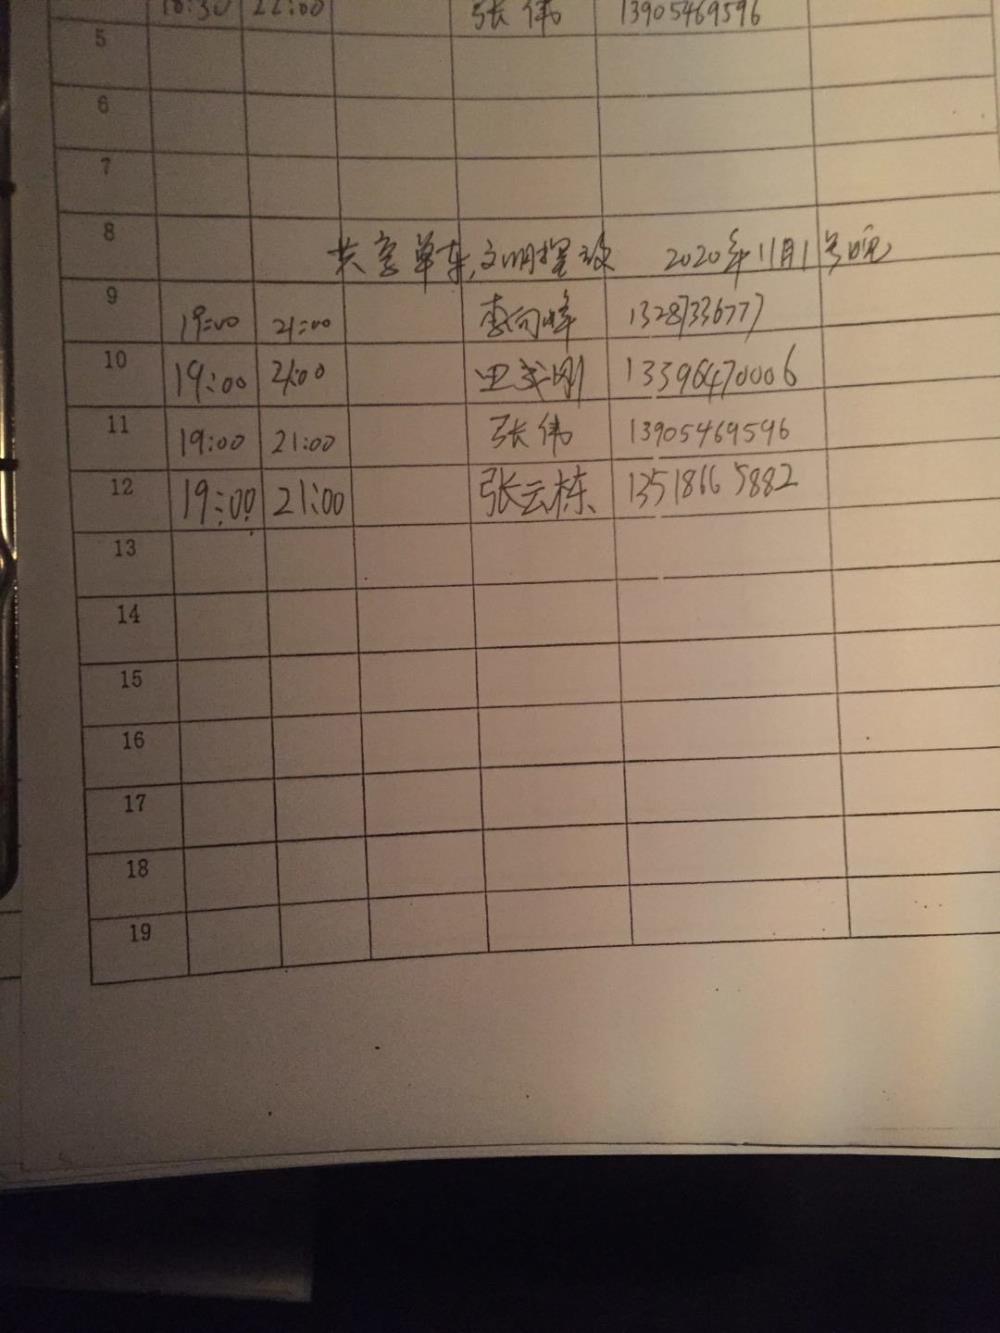 18:30 22:00 张伟 13905469596
5
6
7
8 共享单车,文明摆放 2020年11月1号晚
9 19:00 21:00 李向峰 13287336777
10 19:00 21:00 13396470006
11 19:00 21:00 张伟 13905469596
12 19:00 21:00 张云栋 13518665882
13
14
15
16
17
18
19